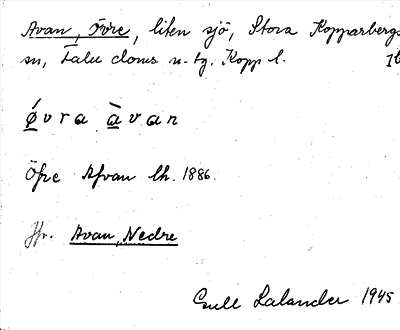 Avan, Övre, liten sjö, Stora Kopparbergs
sn, Falu doms n. tg. Kopp l.
ǿvra àvan
Öfre Afvan lk. 1886.
Jfr. Avan, Nedre
Gull Lalander 1945